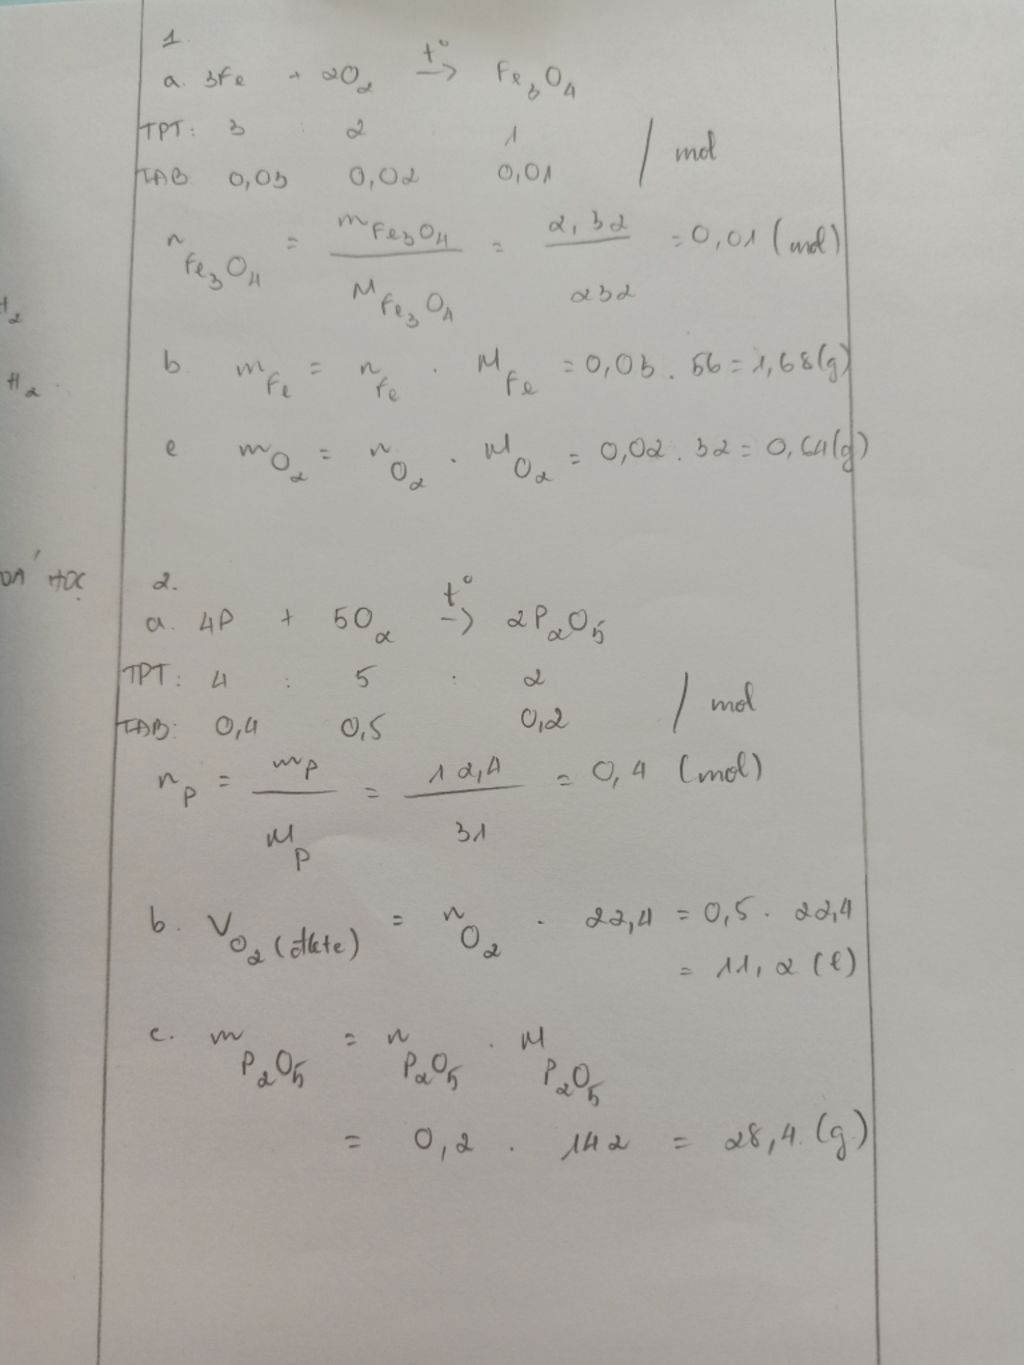 1.
a. 3Fe + 2O₂ t°→ Fe₃O₄
TPT: 3 : 2 : 1
TAB 0,03 0,02 0,01 / mol
n Fe₃O₄ = m Fe₃O₄ / M Fe₃O₄ = 2,32 / 232 = 0,01 (mol)
H₂
b. m Fe = n Fe . M Fe = 0,03 . 56 = 1,68 (g)
H₂
c m O₂ = n O₂ . M O₂ = 0,02 . 32 = 0,64 (g)
HỌC
2.
a. 4P + 5O₂ t°→ 2P₂O₅
TPT: 4 : 5 : 2
TAB: 0,4 0,5 0,2 / mol
n P = m P / M P = 12,4 / 31 = 0,4 (mol)
b. V O₂ (đktc) = n O₂ . 22,4 = 0,5 . 22,4
= 11,2 (l)
c. m P₂O₅ = n P₂O₅ . M P₂O₅
= 0,2 . 142 = 28,4 (g)